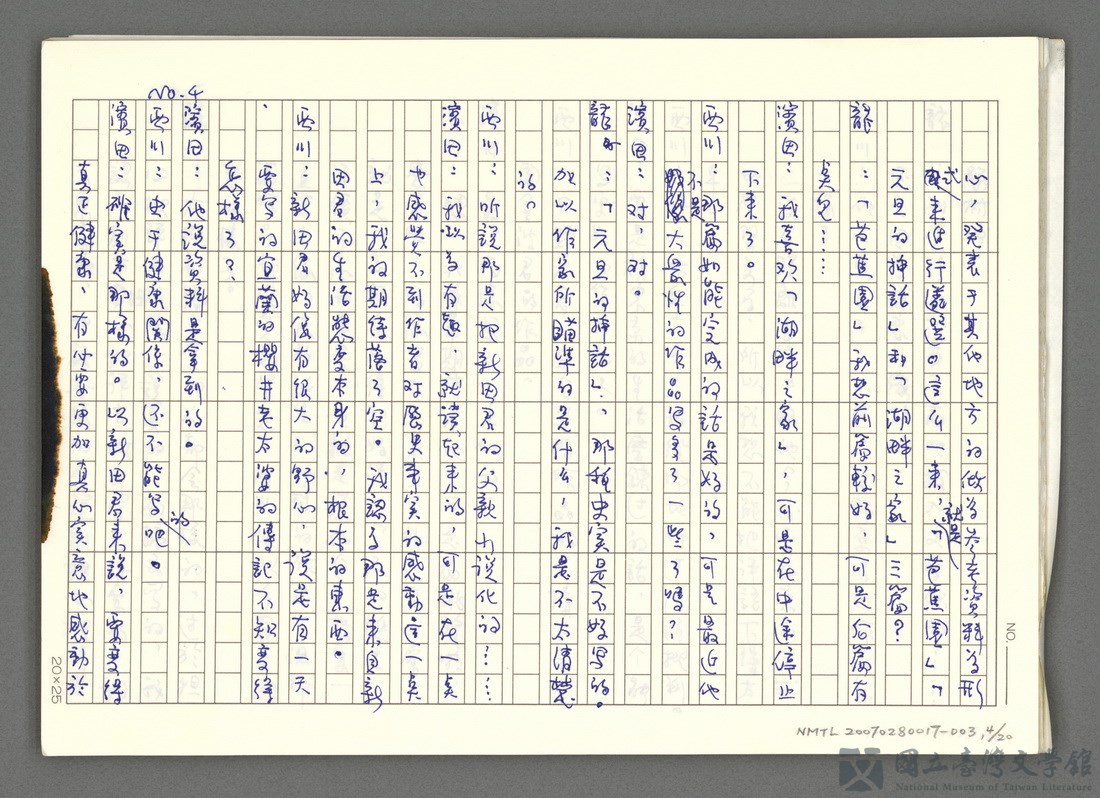 No. 4
心，發表于其他地方的做为参考資料为形
式来進行選選。這么一来，就是「芭蕉園」「
元旦的神話」和「湖畔之家」三篇？
龍：「芭蕉園」我想前篇較好，可是后篇有
点兒……
濱田：我喜欢「湖畔之家」，可是在中途停止
下来了。
西川：那篇如能完成的話是好的，可是最近他
不是大量性的作品写多了一些了嗎？
濱田：对，对。
龍：「元旦的神話」，那種史实是不好写的。
加以作家所瞄準的是什么，我是不太清楚
的。
西川：听說那是把新田君的父親小說化的……
濱田：我以为有趣，就讀起来的，可是在一点
也感覺不到作者对歷史事实的感動這一点
上，我的期待落了空。我認为那是来自新
田君的生活態度本身的，根本的東西。
西川：新田君好像有很大的野心，說是有一天
要写的宜蘭的櫻井老太婆的傳記不知变得
怎様了？
濱田：他說資料是拿到的。
西川：由于健康関係，还不能写的吧。
濱田：確实是那様的。以新田君来說，要变得
真正健康，有必要更加真心实意地感動於
20×25
NO.
NMTL 20070280017-003, 4/20
國立臺灣文學館
National Museum of Taiwan Literature